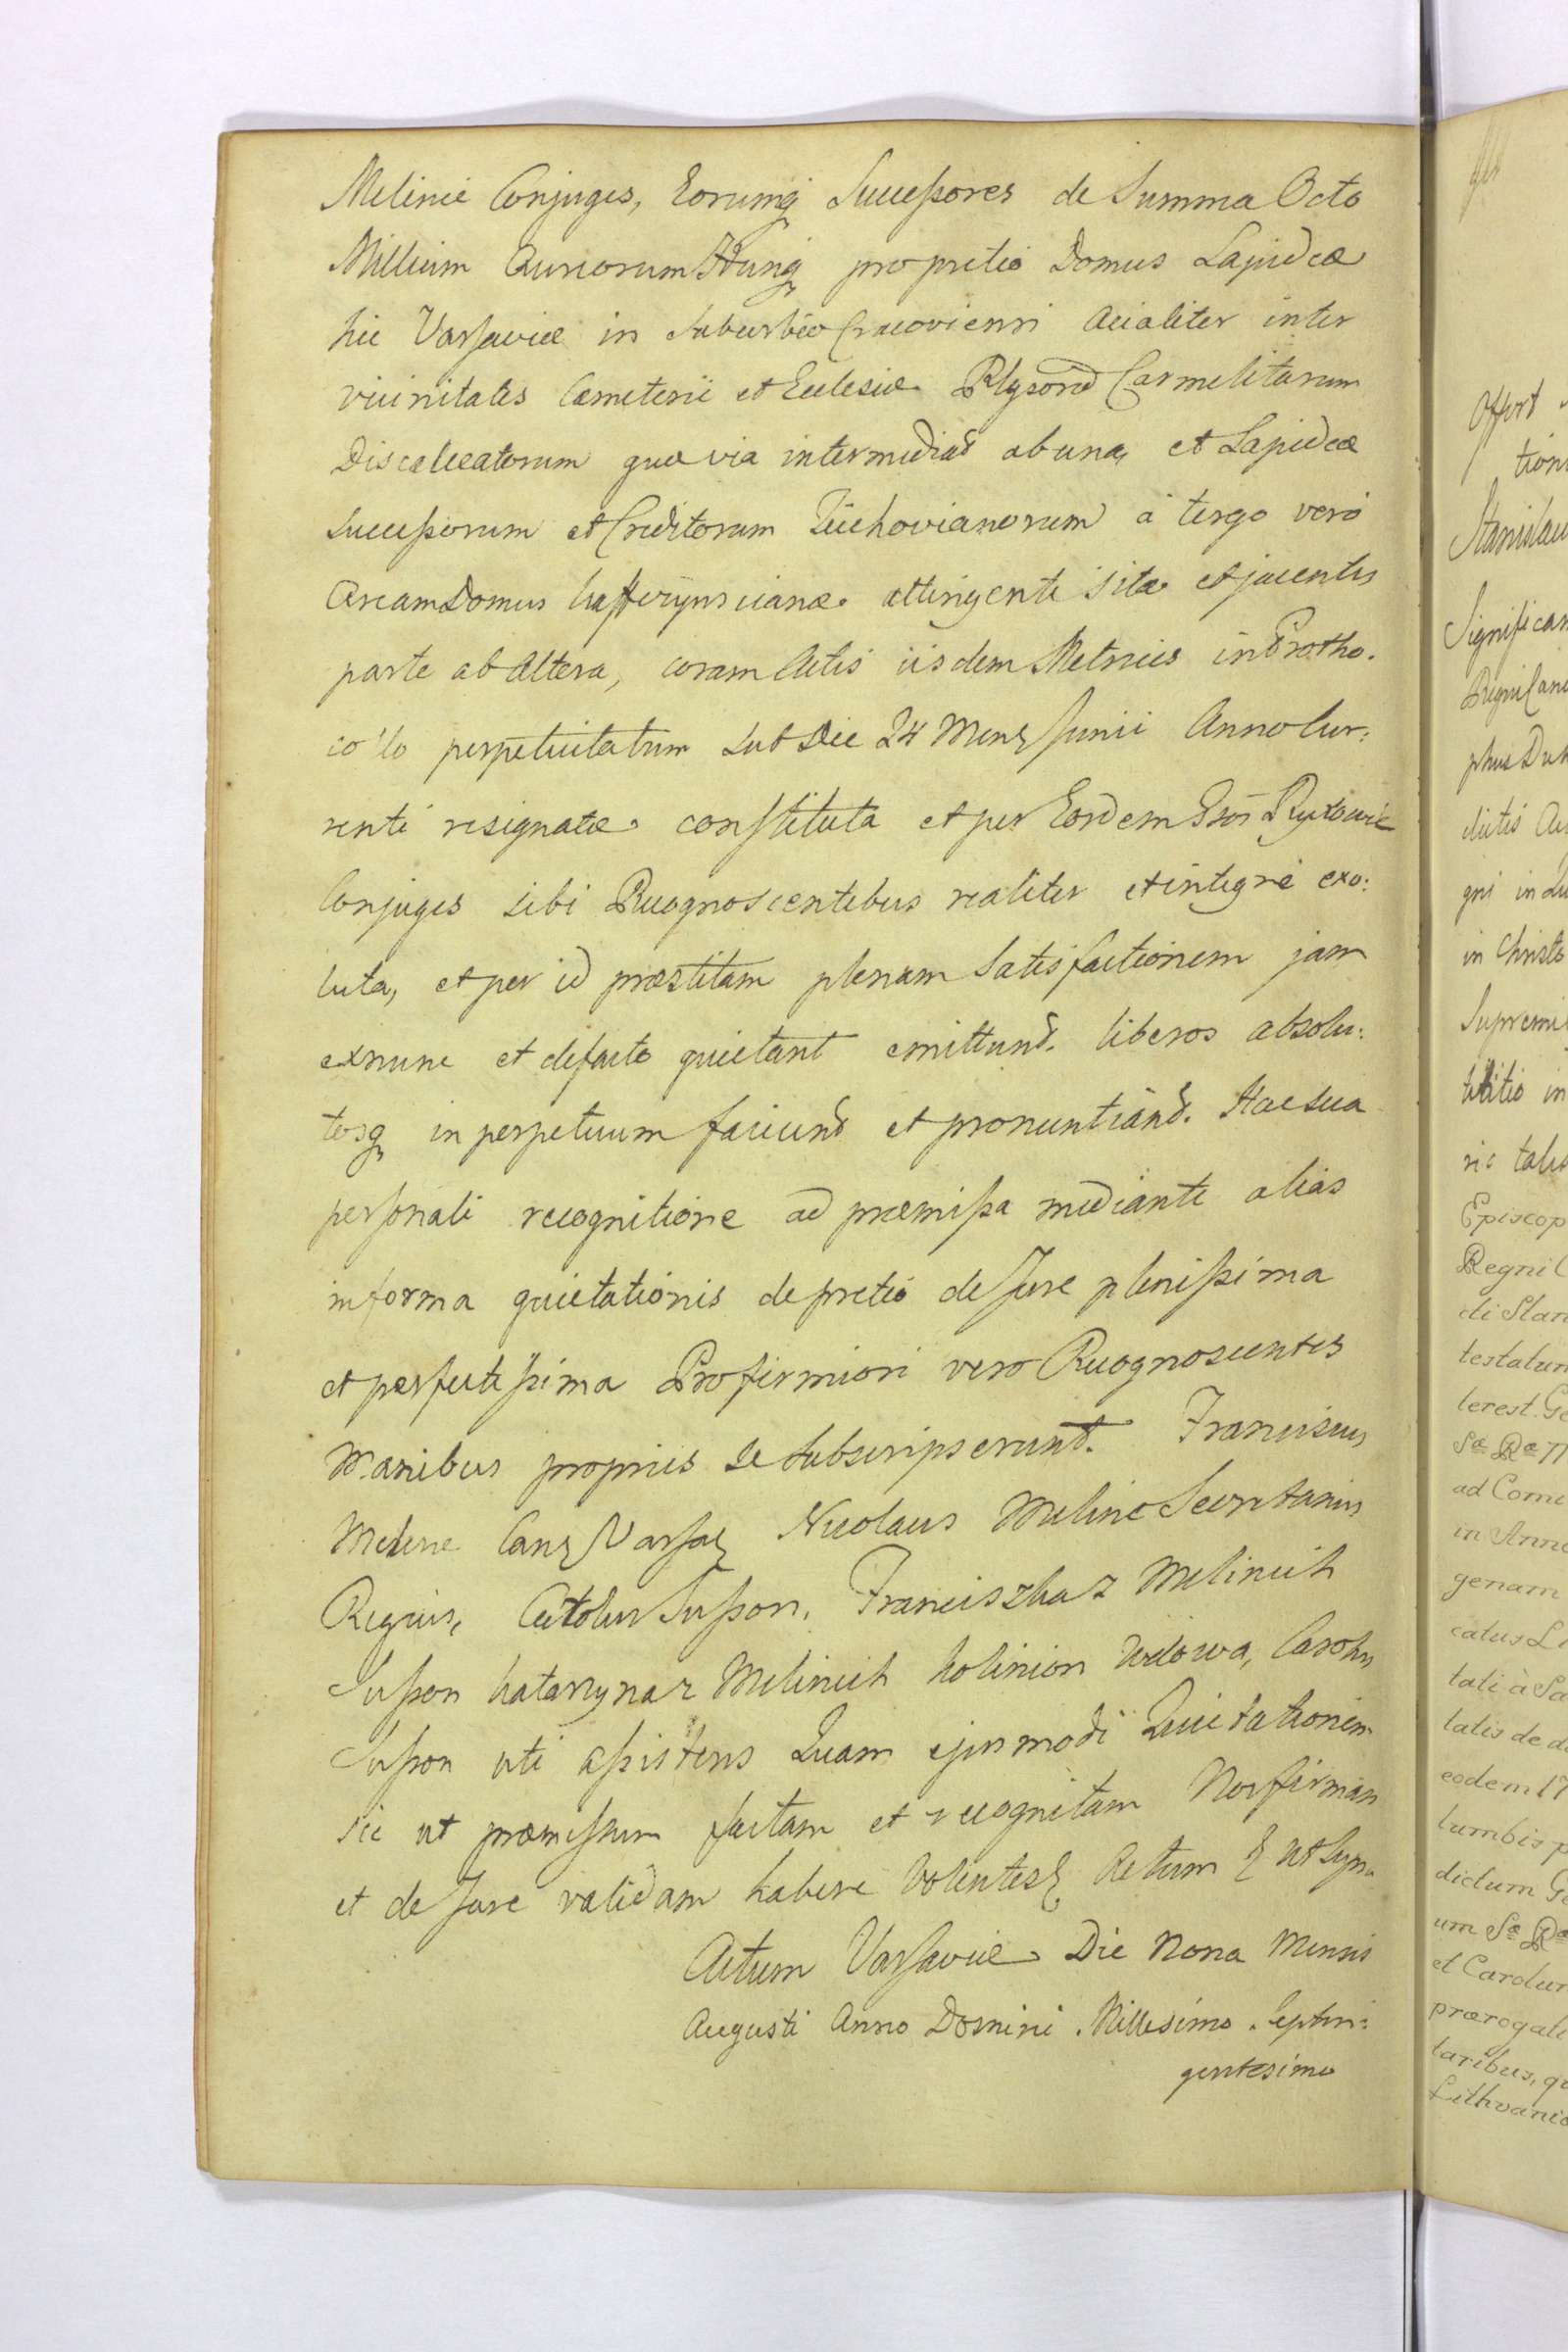 Melinie Conjuges, Eorumq Successores de Summa Octo
Millium Aureorum Hung pro pretio Domus Lapideæ
hic Varsaviæ in Suburbio Cracoviensi Acialiter inter
vicinitates Cæmeterii et Ecclesiæ Carmelitarum
Discalceatorum quæ via intermediat ab una, et Lapideæ
Successorum et Creditorum à tergo vero
Aream Domus attingente sitæ et jacentis
parte ab altera, coram Actis iisdem Metrices in Protho.
collo perpetuitatum sub Die 24 Mens Junii Anno Cur:
renti resignatæ constituta et per Eosdem
Conjuges sibi Recognoscentibus realiter et integre exo:
luta, et per id præstitam plenam Satisfactionem jam
exnunc et defacto quietant emittund. liberos absolu:
tosq in perpetuum faciund et pronuntiand. Hac sua
personali recognitione ad præmissa mediante alias
in forma quietationis de pretio de Jure plenissima
et perfectissima Pro firmiori vero Recognoscentes
Manibus propriis se subscripserunt. Franciscus
Meline Cans Varsa Nicolaus Meline Secretarius
Regius, Susson. Franciszka z Melinich
Susson Katarzyna z Melinich wdowa, Carolus
Susson uti assistens Quam ejusmodi Quietationem
sic ut præmissum factam et recognitam Nos firmam
et de Jure validam habere Volentes Actum ut Supra
Actum Varsaviæ Die Nona Mensis
Augusti Anno Domini Millesimo Septin:
gentesimo
Offert
tion
Stanislau
Significan
Regni Canc
in Christo
Supremi
ris tales
Episcop
Regni C
di Stan
testatum
terest. Ge
ad Comi
in Anno
genam
catus Li
tati à Sa
tatis de d
eodem 17
lumbis p
dictum Ge
et Carolum
prærogati
taribus, qu
Lithvanic